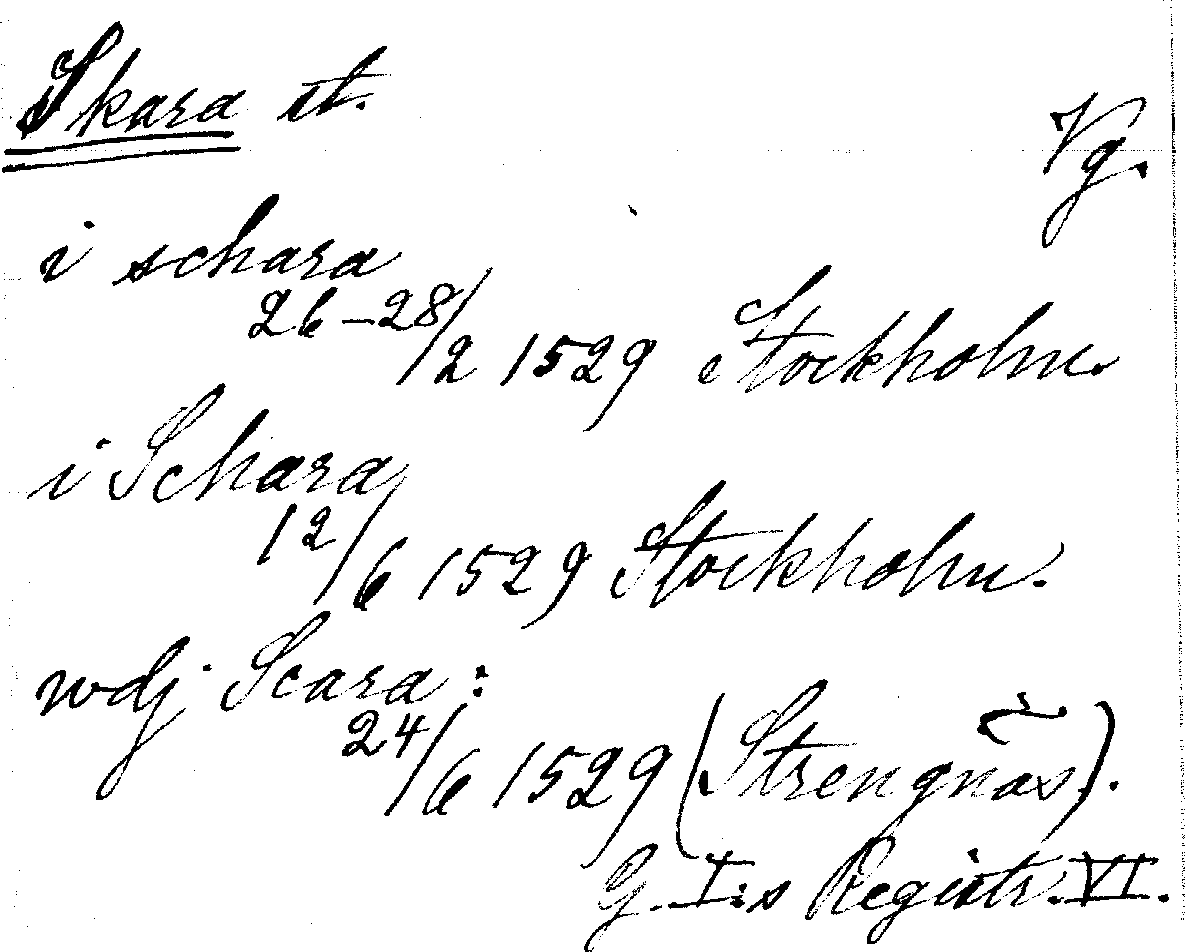 Skara st.
Vg.
i schara
26-28/2 1529 Stockholm.
i Schara
12/6 1529 Stockholm.
wdj Scara:
24/6 1529 (Strengnäs).
G. I:s Registr. VI.